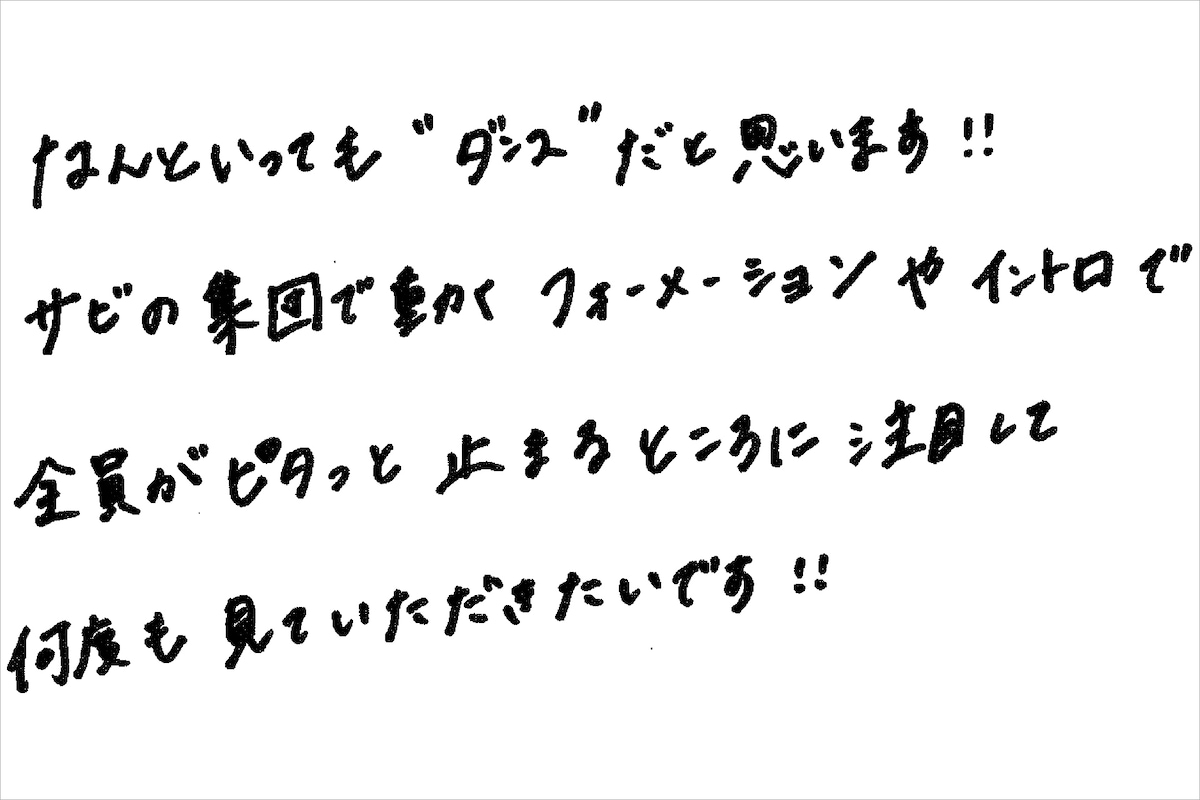 なんといっても"ダンス"だと思います!!
サビの集団で動くフォーメーションやイントロで
全員がピタっと止まるところに注目して
何度も見ていただきたいです!!